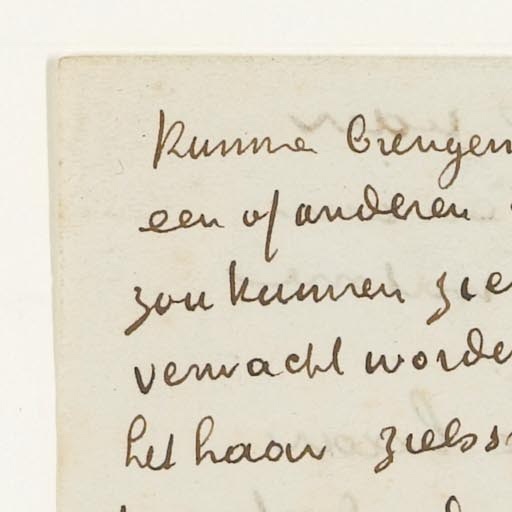 kunne brengen
een of anderen
zou kunnen zie
verwacht worde
het haar ziels